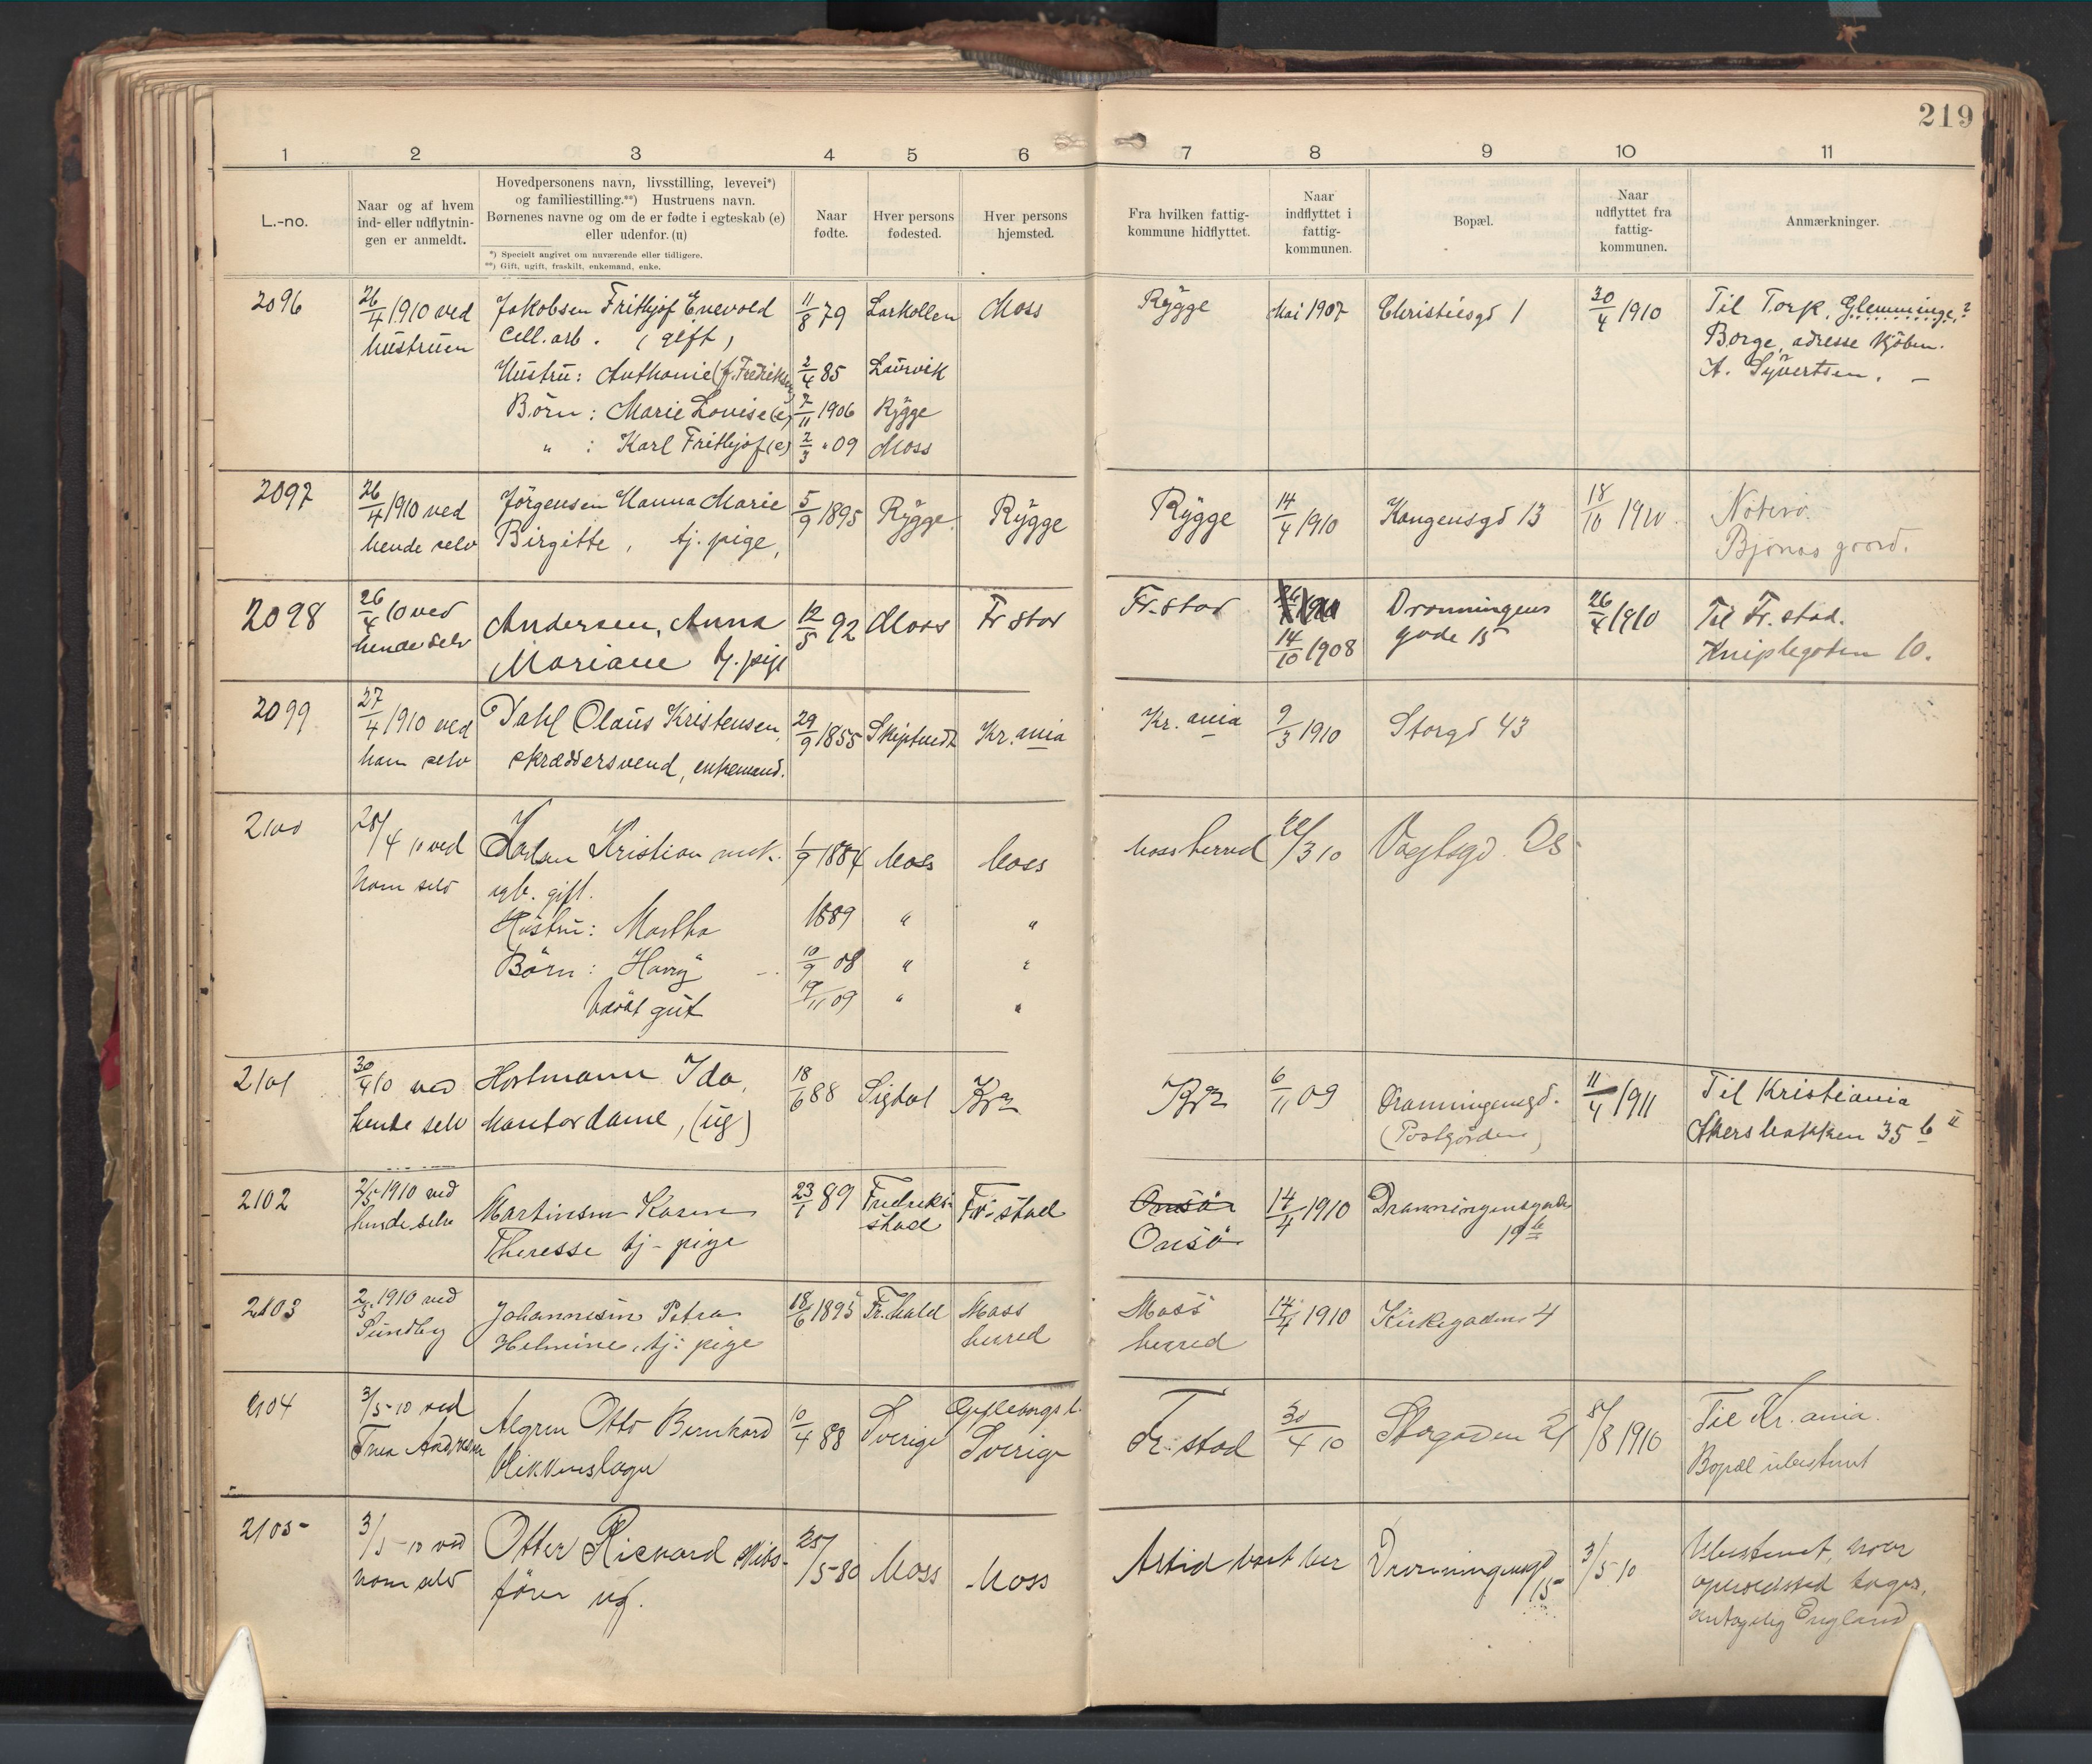 219
1 2 3 4 5 6 7 8 9 10 11
L.-no.
Naar og af hvem
ind- eller udflytnin-
gen er anmeldt.
Hovedpersonens navn, livsstilling, levevei*)
og familiestilling.**) Hustruens navn.
Børnenes navne og om de er fødte i egteskab (e)
eller udenfor. (u)
*) Specielt angivet om nuværende eller tidligere.
**) Gift, ugift, fraskilt, enkemand, enke.
Naar
fødte.
Hver persons
fødested.
Hver persons
hjemsted.
Fra hvilken fattig-
kommune hidflyttet.
Naar
indflyttet i
fattig-
kommunen.
Bopæl.
Naar
udflyttet fra
fattig-
kommunen.
Anmærkninger.
2096 26/4 1910 ved Jakobsen Frithjof Enevold 11/8 79 Larkollen Moss Rygge Mai 1907 Christiesgd 1 30/4 1910 Til Torp, Glemminge?
hustruen Cell. arb. (gift) Borge, adresse kjøbm.
Hustru: Anthonie (f. Fredriksen) 2/4 85 Laurvik A. Syvertsen. –
Børn: Marie Lovise (e) 7/11 1906 Rygge
" : Karl Frithjof (e) 2/3 " 09 Moss
2097 26/4 1910 ved Jörgensen Hanna Marie 5/9 1895 Rygge Rygge Rygge 14/4 1910 Kongensgd 13 18/10 1910. Nøterø.
hende selv Birgitte, tj. pige, Bjønes goord.
2098 26/4 10 ved Andersen, Anna 12/5 92 Moss Fr stad Fr. stad Dronningens 26/4 1910 Til Fr. stad.
hende selv Mariane tj. pige 14/10 1908 gade 15 Kniplegaden 10.
2099 27/4 1910 ved Dahl Olaus Kristensen, 29/9 1855 Skiptvedt Kr. ania Kr. ania 9/3 1910 Storgd 43
ham selv skræddersvend, enkemand.
2100 28/4 10 ved Karlsen Kristian mek. 1/9 1884 Moss Moss Moss herred /3 10 Vogtsgd.
ham selv arb. gift.
Hustru: Martha 1889 " "
Børn: Harry 10/9 08 " "
udöbt gut 19/11 09 " "
2101 30/4 10 ved Hortmann Ida, 18/6 88 Sigdal Kra Kra 6/11 09 Dronningensgd. 11/4 1911 Til Kristiania
hende selv kontordame, (ug) (Postgården) Akersbakken 35 b II
2102 2/5 1910 ved Martinsen Karen 23/1 89 Fredrik- Fr. stad Onsö 14/4 1910 Dronningensgade
hende selv Theresse tj- pige stad Onsö 19 b
2103 2/5 1910 ved Johannesen Petra 18/6 1895 Fr. hald Moss Moss 14/4 1910 Kirkegaden 4
Sundby Helmine, tj: pige herred herred
2104 3/5-10 ved Algren Otto Bernhard 10/4 88 Sverige Gefleborgs l. Fr. stad 30/4 10 Storgaden 21 8/8 1910 Til Kr. ania.
Andresen blikkenslager Sverige Bopæl ubestemt
2105 3/5-10 ved Otter Rickard skibs- 25/5-80 Moss Moss Altid boet her Dronningensgd 3/5 10 Ubestemt, hvor
ham selv fører ug. 15 opholdssted tages,
antagelig England